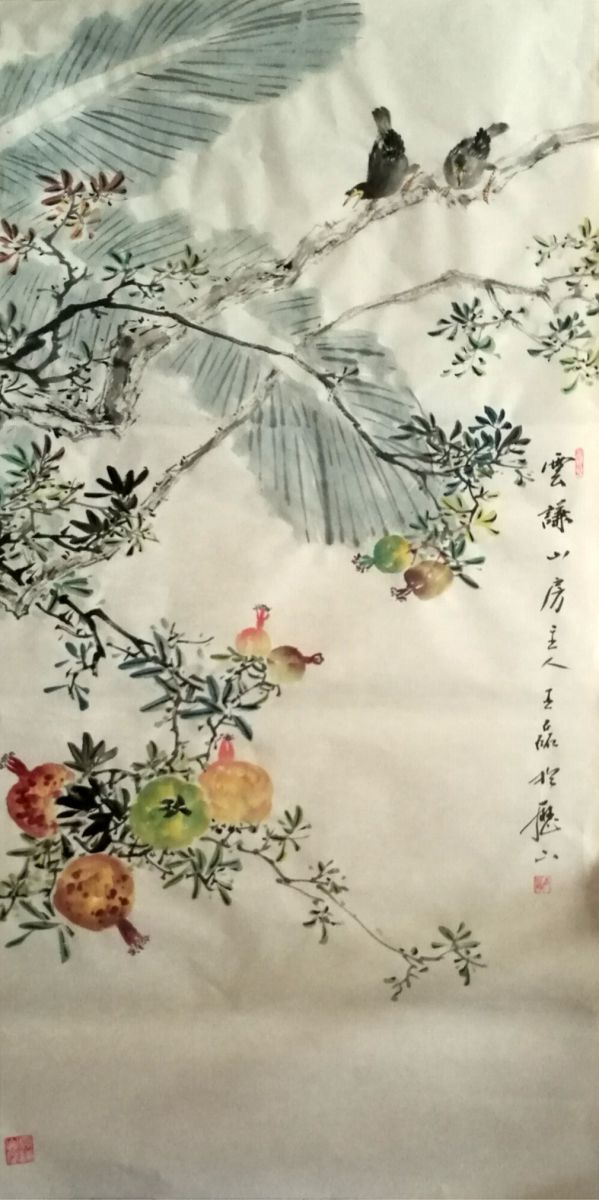 雲謙山房主人王磊於歷山